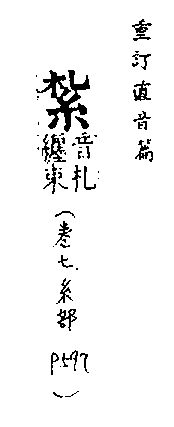 重訂直音篇
紮
音札
纏束
（卷七．糸部
P.597
）